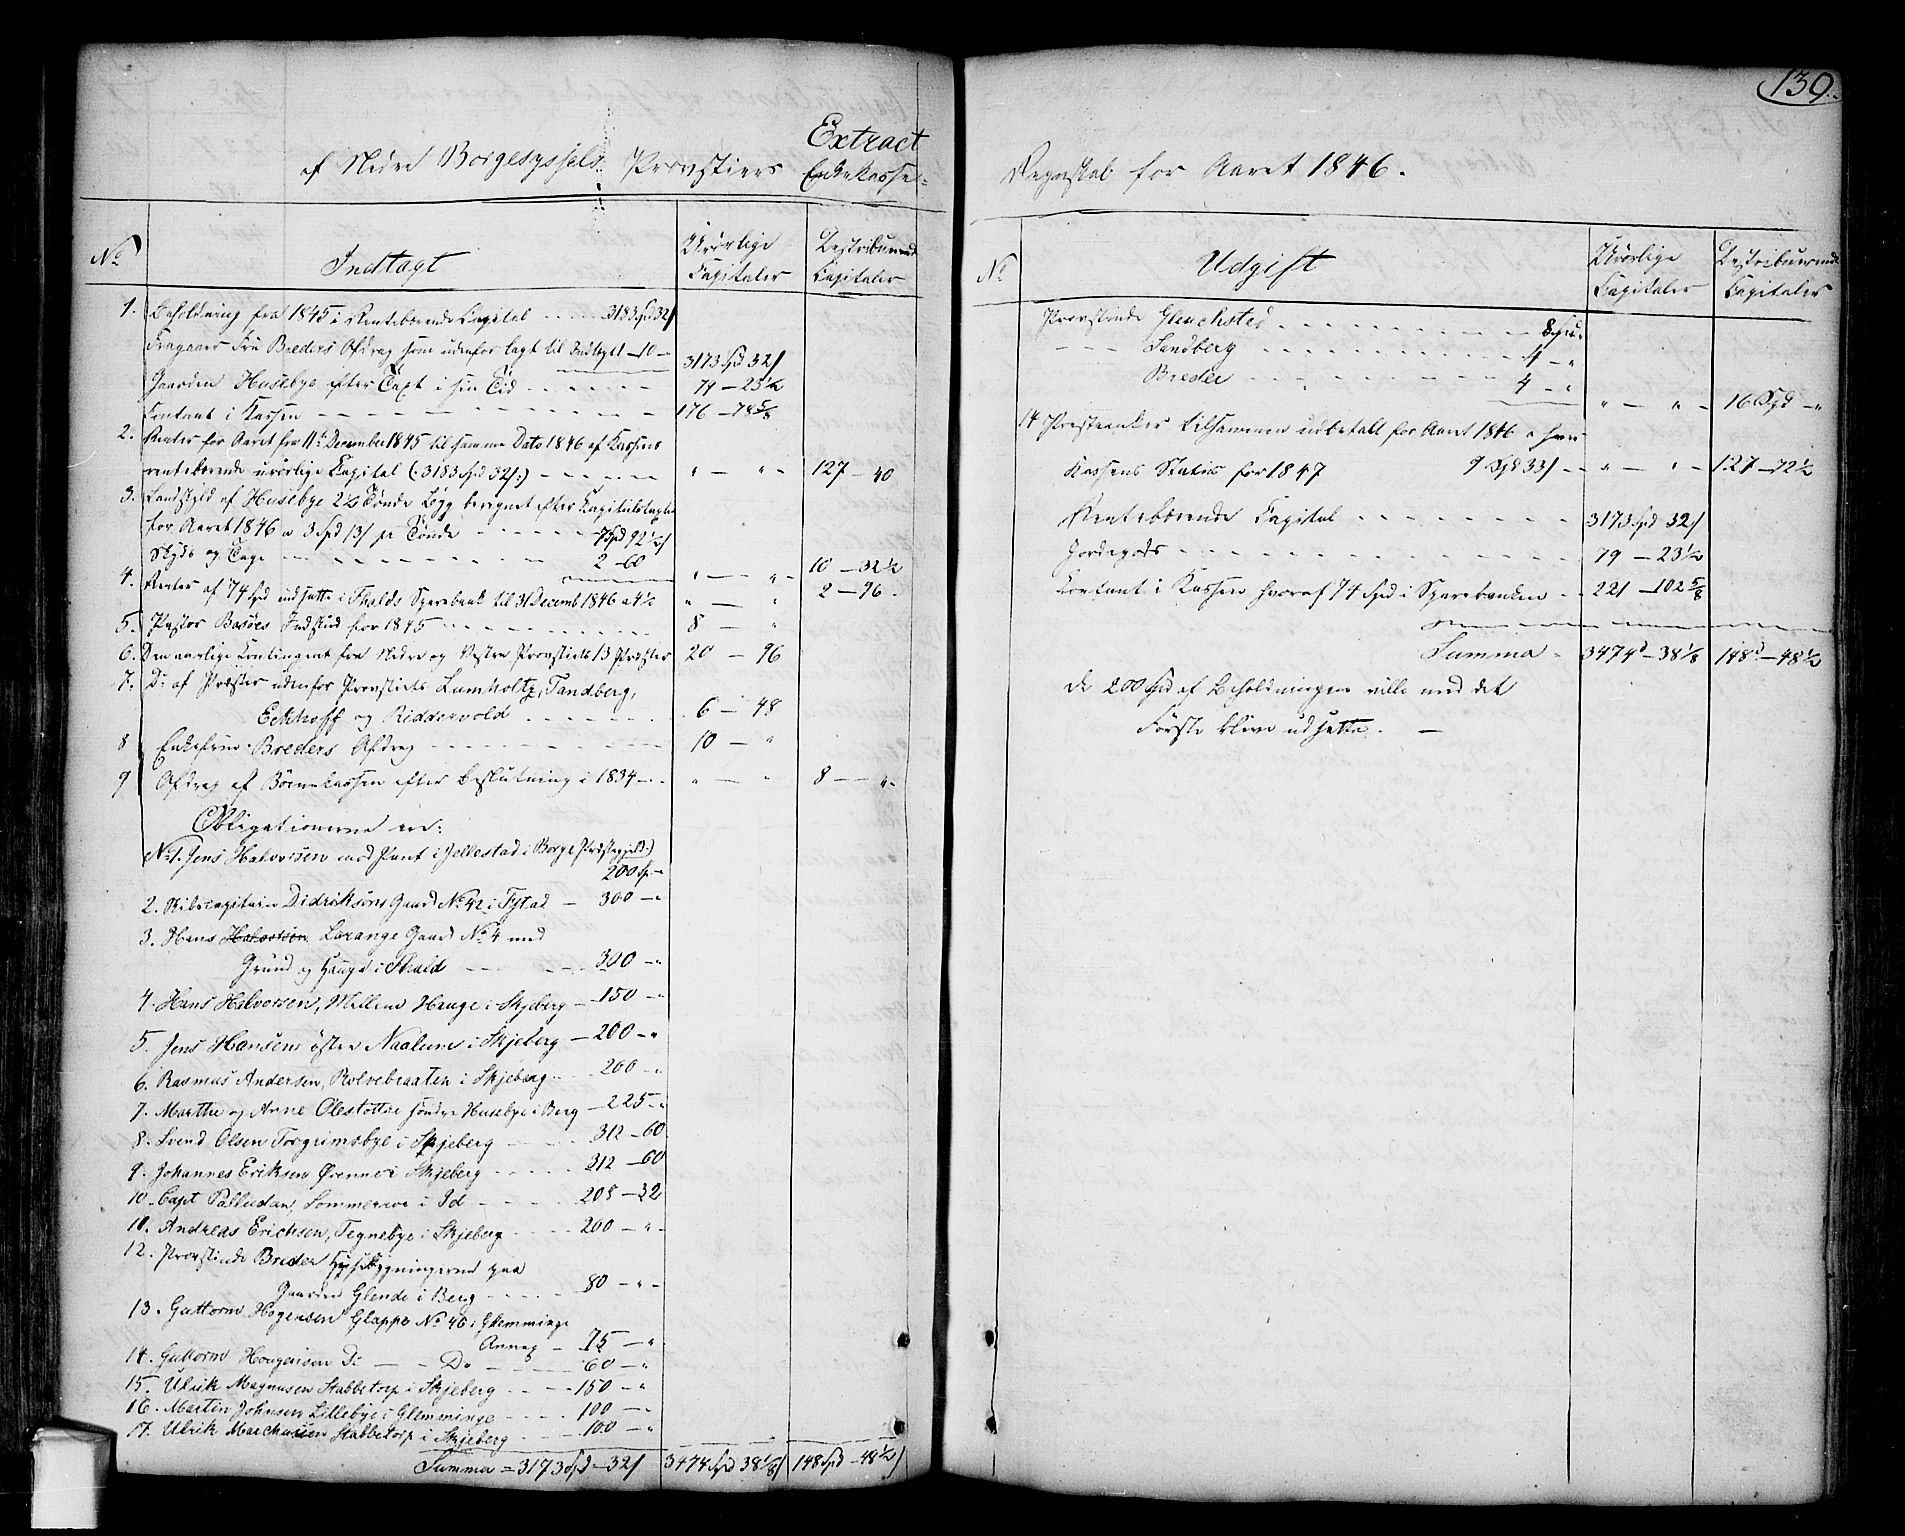 Extract
af Nedre Borgesyssels Provstiers Enkekasse-
No
Indtægt
Urörlige Capitaler
Destribuerende Capitaler
1. Beholdning fra 1845 i Rentebærende Capital - - - 3183 spd 32/
Fragaaer Fru Breders Afdrag som udenfor lagt til Indtægt - 10 - 3173 spd 32/
Gaarden Husebye efter Taxt i sin Tid - - - - - 79 - 23 1/2
Contant i Kassen - - - - - - - 176 - 78 5/8
2. Renter for Aaret fra 11te December 1845 til samme Dato 1846 af Kassens
rentebærende urörlige Capital (:3183 spd 32/:) - - - - - " - " - 127 - 40
3. Landskyld af Husebye 2 1/2 Tönde Byg beregnet efter Kapitelstaxten
for Aaret 1846 a 3 spd 13/ pr Tönde - - - - - 7 spd 92 1/2/
Skyds og Tage - - - - - - - 2 - 60 " - " - 10 - 32 1/2
4. Renter af 74 spd indsatte i Fhalds Sparebank til 31 Decemb 1846 a 4 1/2 " - " 2 - 96.
5. Pastor Basöes Indskud for 1845 - - - - - - 8 - "
6. Den aarlige Contingent fra Nedre og Vestre Provstiets 13 Præster 20 - 96
7. Do af Præster udenfor Provstiets Lumholtz, Tandberg,
Eckhoff og Riddervold - - - - - - 6 - 48
8 Enkefrue Breders Afdrag - - - - - - - 10 - "
9 Afdrag af Börnekassen efter Beslutning i 1834 - - " - " 8 - " -
Obligationerne ere:
No 1. Jens Halvorsen med Pant i Jellestad i Borge Præstegjeld:)
200 sp -
2. Didriksöns Gaard No 42 i Fstad - 300 - "
3. Hans Halvorsön Lorange Gaard No 4 med
Grund og Hauge i Fhald - - - - - 300 - "
4. Hans Halvorsen, Mellem Hauge i Skjeberg - 150 - "
5. Jens Hansen östen Naalum i Skjeberg - 200 - "
6. Rasmus Andersen, Rolvebraaten i Skjeberg - - 200 - "
7. Marthe og Anne Olesdöttre söndre Husebye i Berg - 225 - "
8. Svend Olsen Torgrimsbye i Skjeberg - - - - 312 - 60
9. Johannes Eriksen Örenne i Skjeberg - - - - - 312 - 60
10. Capt Palludan, Sommeroe i Id - - - - - 208 - 32
11. Andreas Erichsen, Tegnebye i Skjeberg - - - - 200 - " -
12. Provstinde Breder Huusebygningerne paa
Gaarden Glende i Berg - - - - - 80 - " -
13. Guttorm Hogensen Glappe No 46 i Glemminge
Annex - 75 - "
14. Guttorm Hougensen Do - - Do - - - - 60 - "
15. Ulrik Magnusen Stabbetorp i Skjeberg - - - - 150 - "
16. Martin Johnsen Lillebye i Glemminge - - - - 100 - "
17. Ulrik Marchusen Stabbetorp i Skjeberg - - - - 100 - "
Summa = 3173 spd - 32/ 3474 spd 38 1/8/ 148 spd - 48 1/2/
139.
Regnskab for Aaret 1846.
No
Udgift
Urörlige Capitaler
Destribuerende Capitaler
Provstinde Gluchsted - - - - - - - - 8 spd "
- - - Sandberg - - - - - - - - - 4 - "
Breder - - - - - - - - - 4 - "
" - " - 16 Spd - "
14 Præsteenker tilsammen udbetalt for Aaret 1846 a hver
9 Spd 33/ - - " - " - 127 - 72 1/2
Kassens Status for 1847
Rentebærende Capital - - - - - - - 3173 spd 32/
Jordegods - - - - - - - - - - - 79 - 23 1/2
Contant i Kassen hvoraf 74 spd i Sparebanken - - 221 - 102 5/8
Summa - 3474d - 38 1/8 148d - 48 1/2
De 200 spd af Beholdningen ville med det
Förste blive udsatte. -